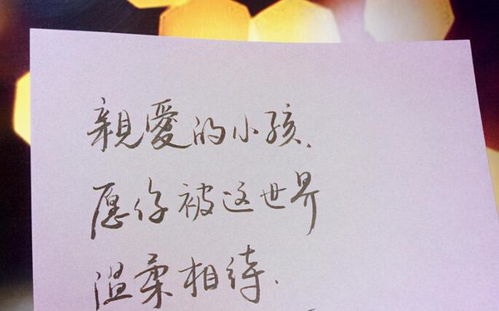 親愛的小孩.
愿你被这世界
温柔相待.